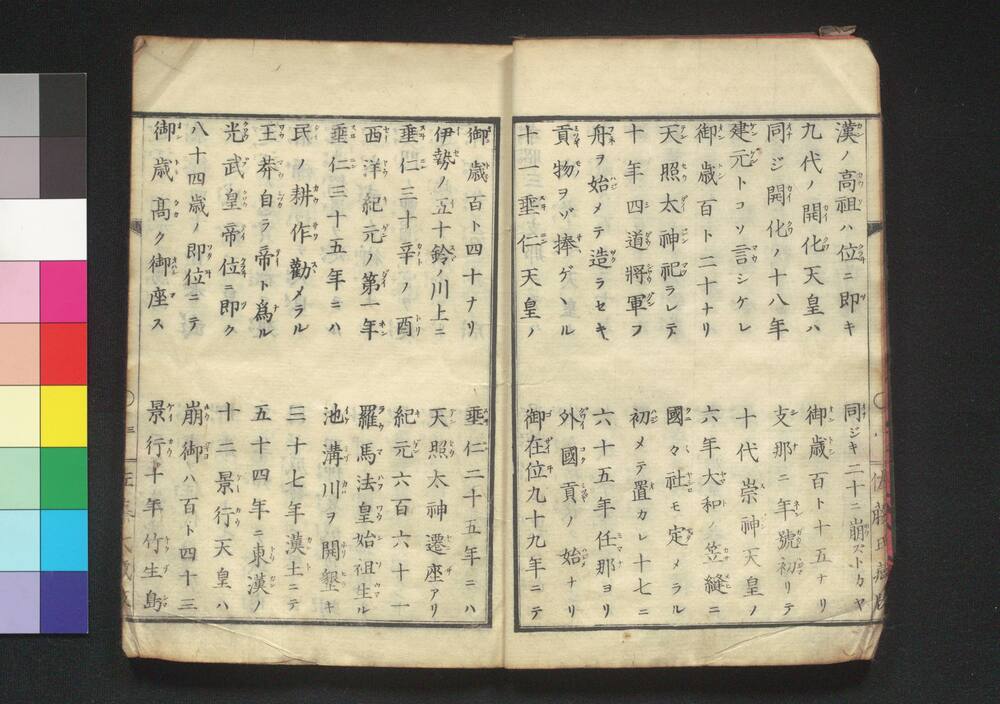 漢ノ高祖ハ位ニ即キ
同ジキ二十ニ崩ズトカヤ
九代ノ開化天皇ハ
御歳百ト十五ナリ
同ジ開化ノ十八年
支那ニ年號初リテ
建元トコソ言シケレ
十代崇神天皇ノ
御歳百ト二十ナリ
六年大和ノ笠縫ニ
天照太神祀ラレテ
國々社モ定メラル
十年四道將軍ヲ
初メテ置カレ十七ニ
舟ヲ始メテ造ラセキ
六十五年任那ヨリ
貢物ヲゾ捧ゲヽル
外國貢ノ始ナリ
十一垂仁天皇ノ
御在位九十九年ニテ
御歳百ト四十ナリ
垂仁二十五年ニハ
伊勢ノ五十鈴ノ川上ニ
天照太神遷座アリ
垂仁三十辛ノ酉
紀元六百六十一
西洋紀元ノ第一年
羅馬法皇始祖生ル
垂仁三十五年ニハ
池溝川ヲ開墾キ
民ノ耕作勸メラル
三十七年漢土ニテ
王莽自ラ帝ト爲ル
五十四年ニ東漢ノ
光武皇帝位ニ即ク
十二景行天皇ハ
八十四歳ノ即位ニテ
崩御ハ百ト四十三
御歳高ク御座ス
景行十年竹生島